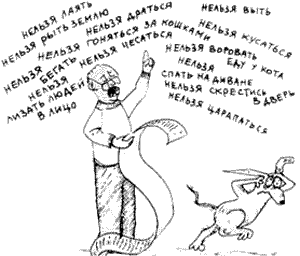 НЕЛЬЗЯ ЛАЯТЬ
НЕЛЬЗЯ РЫТЬ ЗЕМЛЮ
НЕЛЬЗЯ ДРАТЬСЯ
НЕЛЬЗЯ ГОНЯТЬСЯ ЗА КОШКАМИ
НЕЛЬЗЯ БЕГАТЬ
НЕЛЬЗЯ ЧЕСАТЬСЯ
НЕЛЬЗЯ
ЛИЗАТЬ ЛЮДЕЙ
В ЛИЦО
НЕЛЬЗЯ ВЫТЬ
НЕЛЬЗЯ КУСАТЬСЯ
НЕЛЬЗЯ ВОРОВАТЬ
ЕДУ У КОТА
НЕЛЬЗЯ
СПАТЬ НА ДИВАНЕ
НЕЛЬЗЯ СКРЕСТИСЬ
В ДВЕРЬ
НЕЛЬЗЯ ЦАРАПАТЬСЯ